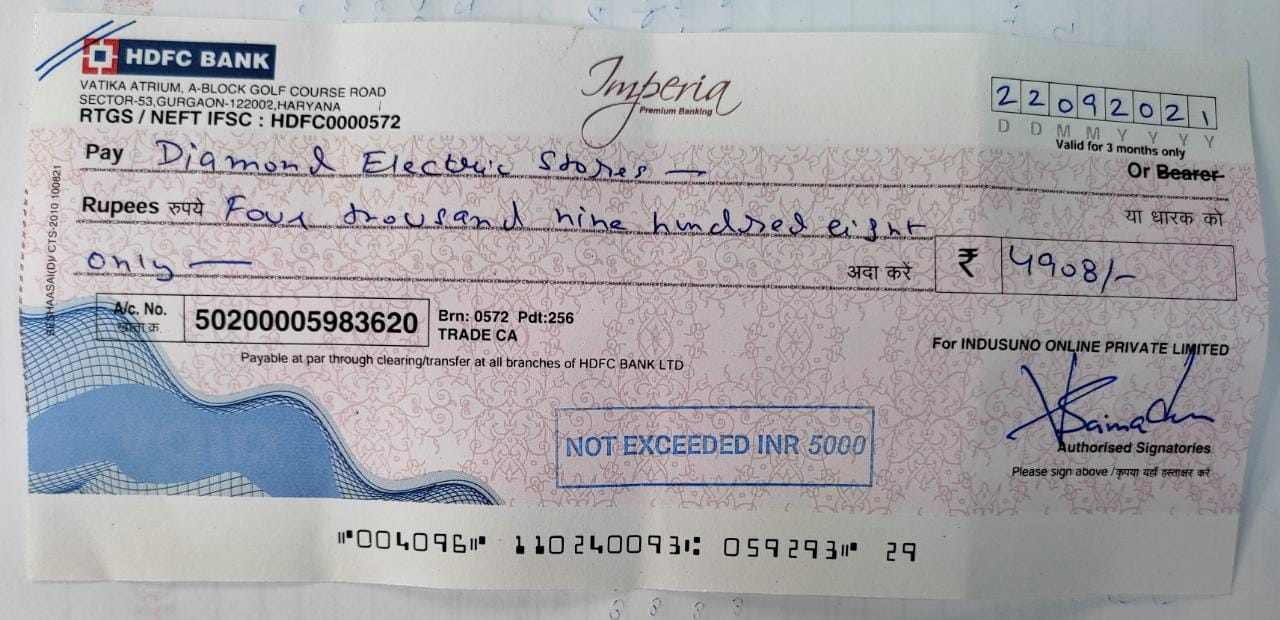 HDFC BANK
VATIKA ATRIUM, A-BLOCK GOLF COURSE ROAD
SECTOR-53,GURGAON-122002,HARYANA
RTGS / NEFT IFSC : HDFC0000572
Imperia
Premium Banking
22092021
D D M M Y Y Y Y
Valid for 3 months only
Pay Diamond Electric Stores —
Or Bearer
Rupees रुपये Four thousand nine hundred eight
या धारक को
only —
अदा करें ₹ 4908/-
A/c. No.
खाता क्र.
50200005983620
Brn: 0572 Pdt:256
TRADE CA
Payable at par through clearing/transfer at all branches of HDFC BANK LTD
For INDUSUNO ONLINE PRIVATE LIMITED
NOT EXCEEDED INR 5000
Authorised Signatories
Please sign above /कृपया यहाँ हस्ताक्षर करें
⑈004096⑈ 110240093⑆ 059293⑈ 29